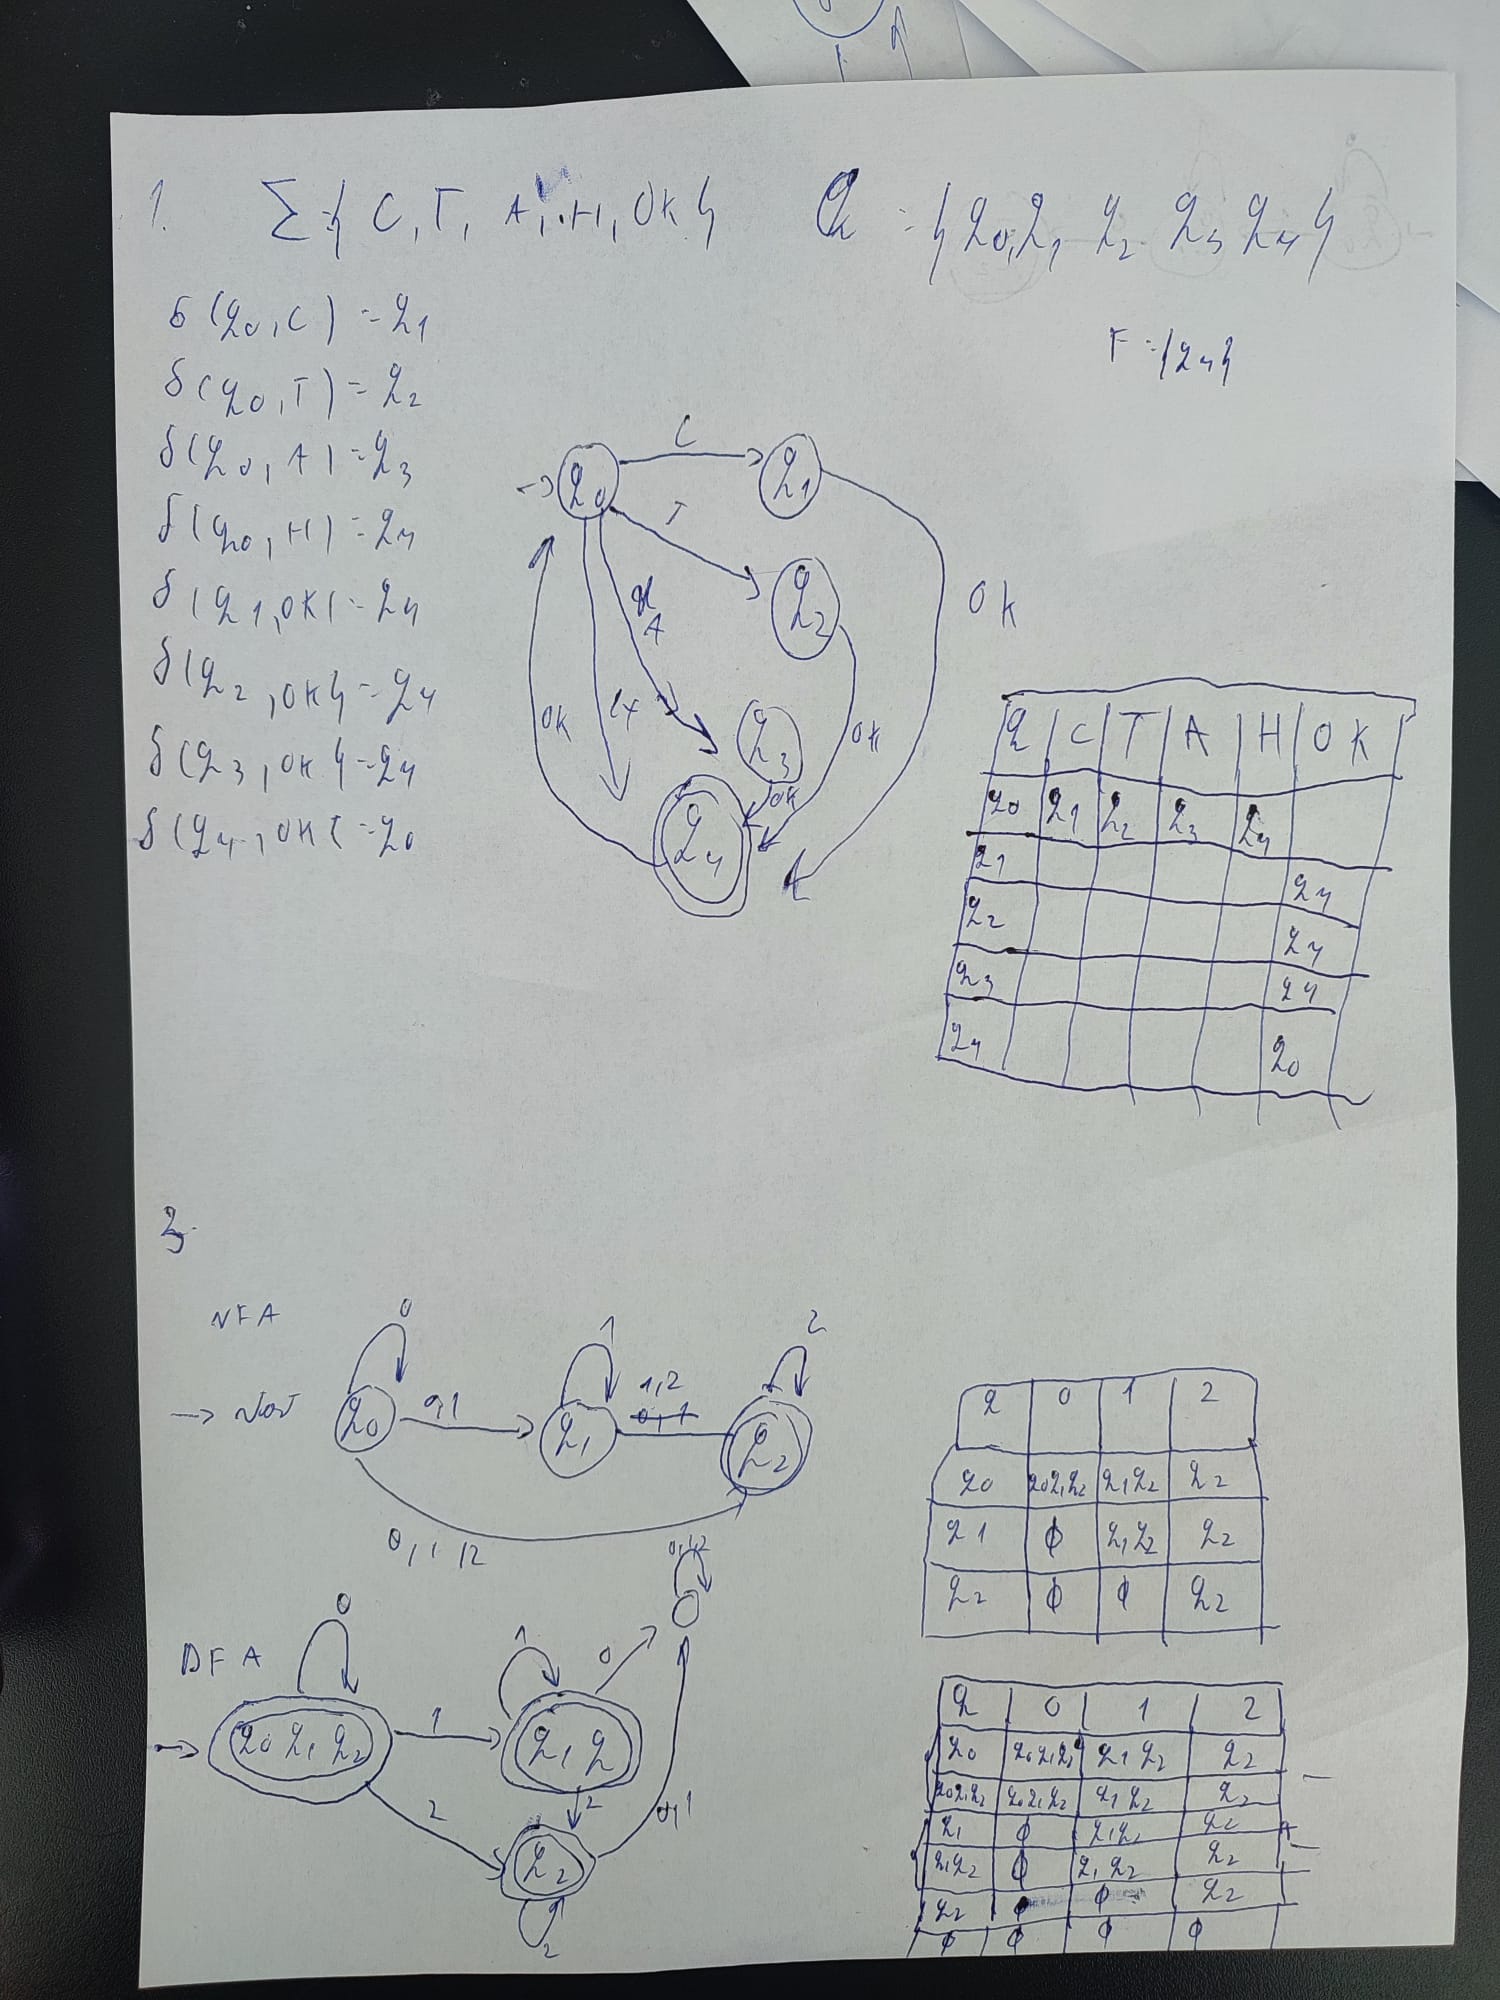 1. Σ { C, T, A, H, OK } Q = { q0, q1 q2 q3 q4 }
F = { q4 }
δ (q0, C) = q1
δ (q0, T) = q2
δ (q0, A) = q3
δ (q0, H) = q4
δ (q1, OK) = q4
δ (q2, OK) = q4
δ (q3, OK) = q4
δ (q4, OK) = q0
q0 C q1
T
q2
A
OK
q3
OK OK
OK
q4
q C T A H OK
q0 q1 q2 q3 q4
q1 q4
q2 q4
q3 q4
q4 q0
3.
NFA
0 1 2
q0 0,1 q1 1,2 q2
0, 1, 2
q 0 1 2
q0 q0q1q2 q1q2 q2
q1 ϕ q1q2 q2
q2 ϕ ϕ q2
DFA
0 1 0 0,1,2
q0 q1 q2 1 q1 q
2 2 0,1
q2
2
q 0 1 2
q0 q0q1q2 q1 q2 q2
q0q1q2 q0q1q2 q1 q2 q2
q1 ϕ q1q2 q2
q1q2 ϕ q1 q2 q2
q2 ϕ ϕ q2
ϕ ϕ ϕ ϕ